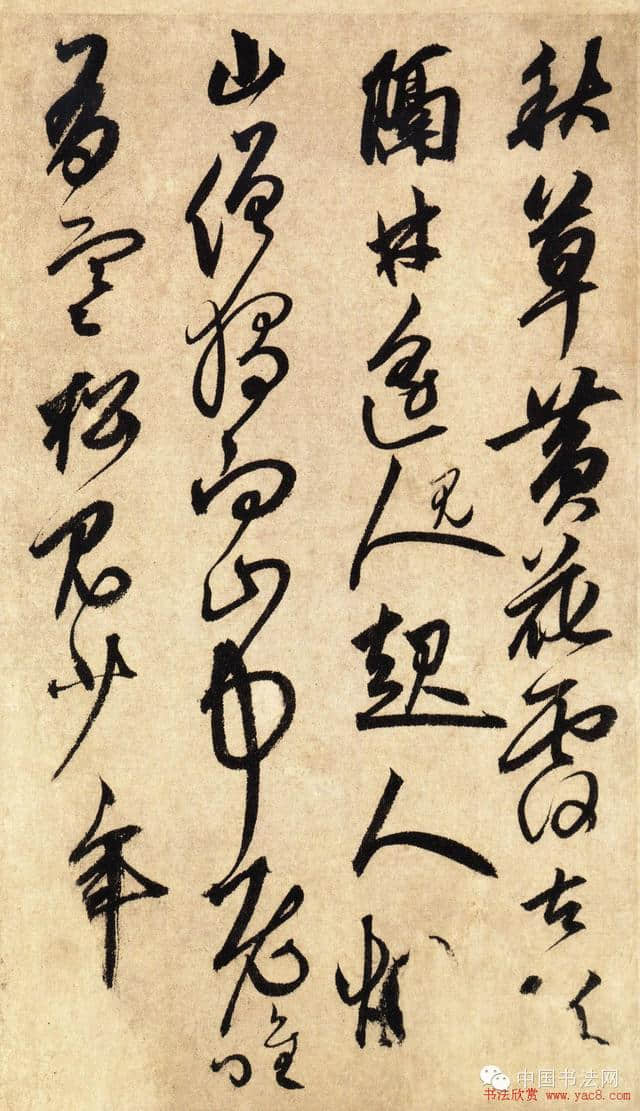 秋草黃花覆古阡
隔林遙人見起人煙
山僧獨向山中老唯
有寒松見少年
中国书法网
书法欣赏 www.yac8.com